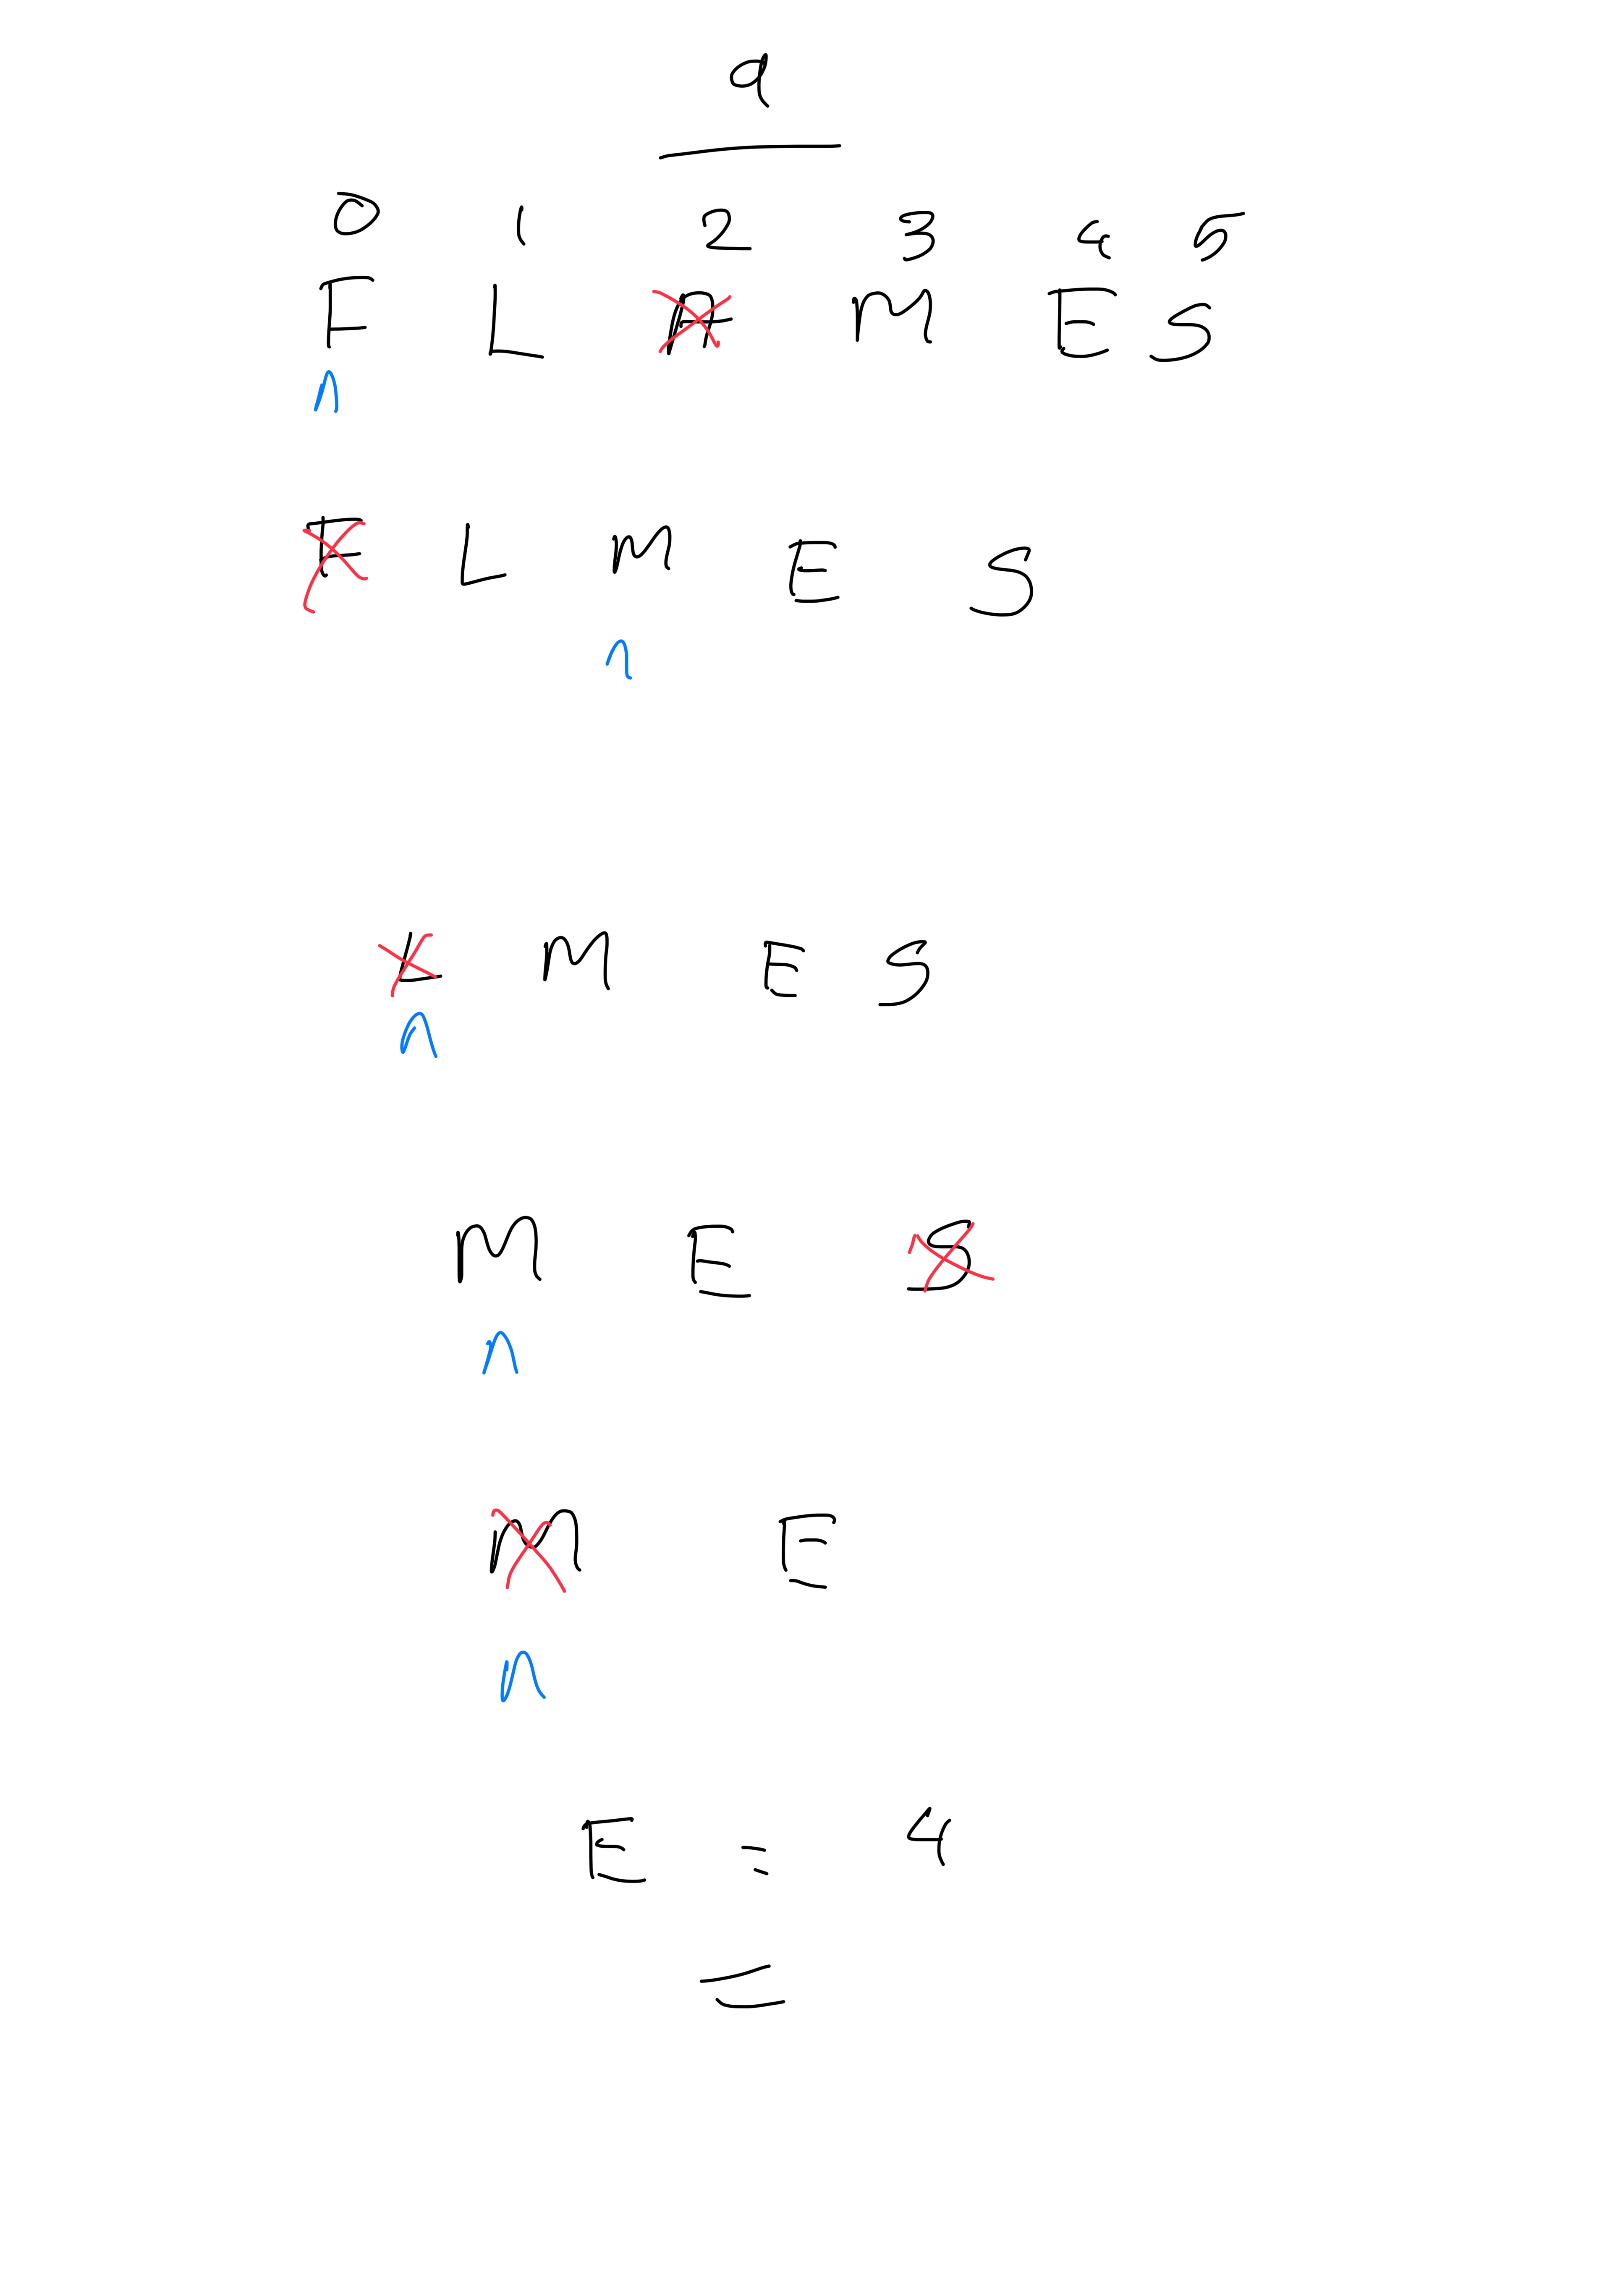 9
0 1 2 3 4 5
F L A M E S
F L M E S
L M E S
M E S
M E
E = 4